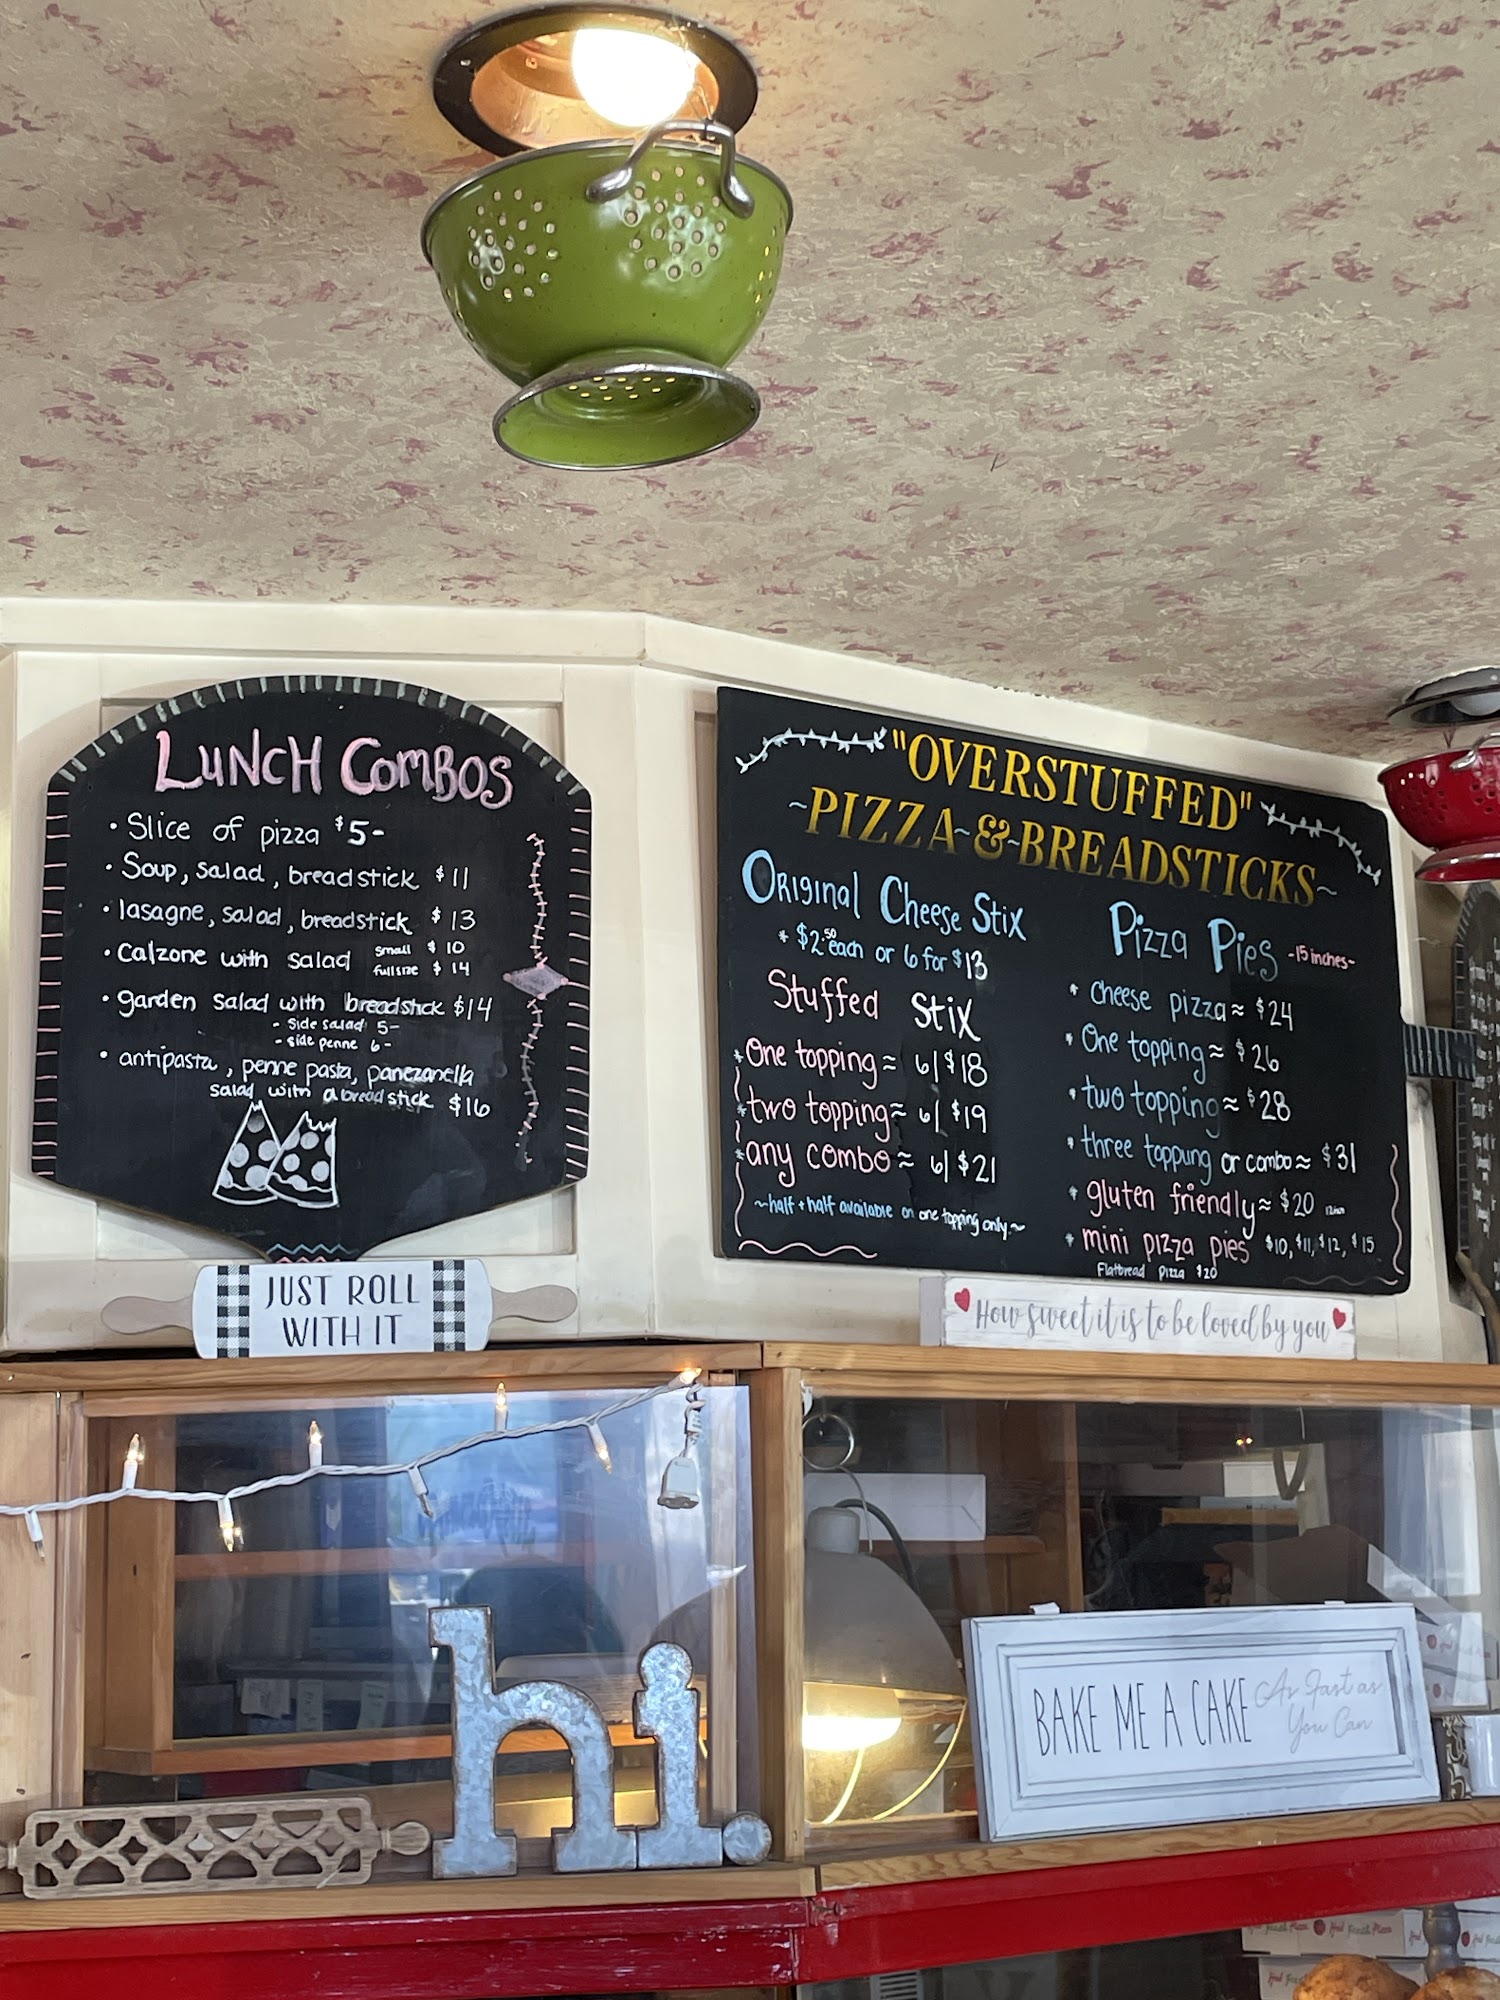 LUNCH COMBOS
• Slice of pizza $5-
• Soup, salad, breadstick $11
• lasagne, salad, breadstick $13
• Calzone with salad small $10
full size $14
• garden salad with breadstick $14
- Side salad 5-
- side penne 6-
• antipasta, penne pasta, panezanella
salad with a breadstick $16
JUST ROLL
WITH IT
"OVERSTUFFED"
~PIZZA~&~BREADSTICKS~
Original Cheese Stix
* $2.50 each or 6 for $13
Stuffed Stix
* One topping ≈ 6/$18
* two topping ≈ 6/$19
* any combo ≈ 6/$21
~half + half available on one topping only~
Pizza Pies -15 inches-
* cheese pizza ≈ $24
* One topping ≈ $26
* two topping ≈ $28
* three topping or combo ≈ $31
* gluten friendly ≈ $20
* mini pizza pies $10, $11, $12, $15
Flatbread pizza $20
How sweet it is to be loved by you
hi.
BAKE ME A CAKE As Fast as
You Can